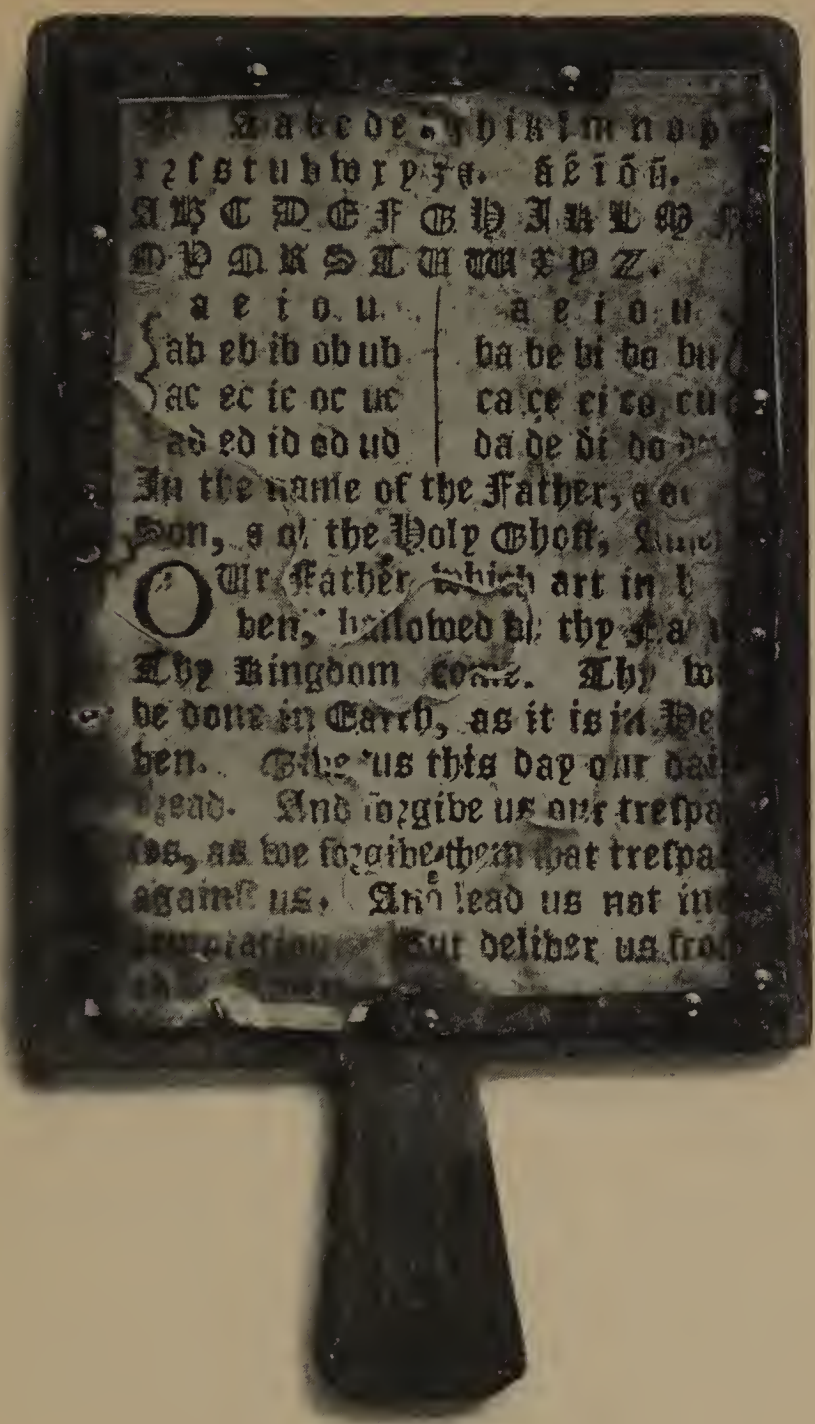 A a b c d e f g h i k l m n o p
r ꝛ ſ s t u v w x y z &. ã ẽ ĩ õ ũ.
A B C D E F G H I K L M N
O P Q R S T U W X Y Z.
a e i o u a e i o u
ab eb ib ob ub ba be bi bo bu
ac ec ic oc uc ca ce ci co cu
ad ed id od ud da de di do du
In the name of the Father, & of
Son, & of the Holy Ghoſt, Amen
OUr Father which art in
ven, hallowed be thy
Thy Kingdom come. Thy
be done in Earth, as it is in Hea
ven. Give us this day our dai
bꝛead. And foꝛgive us our treſpa
ſes, as we foꝛgive them that treſpa
againſt us. And lead us not in
temptation. But deliver us from
Amen